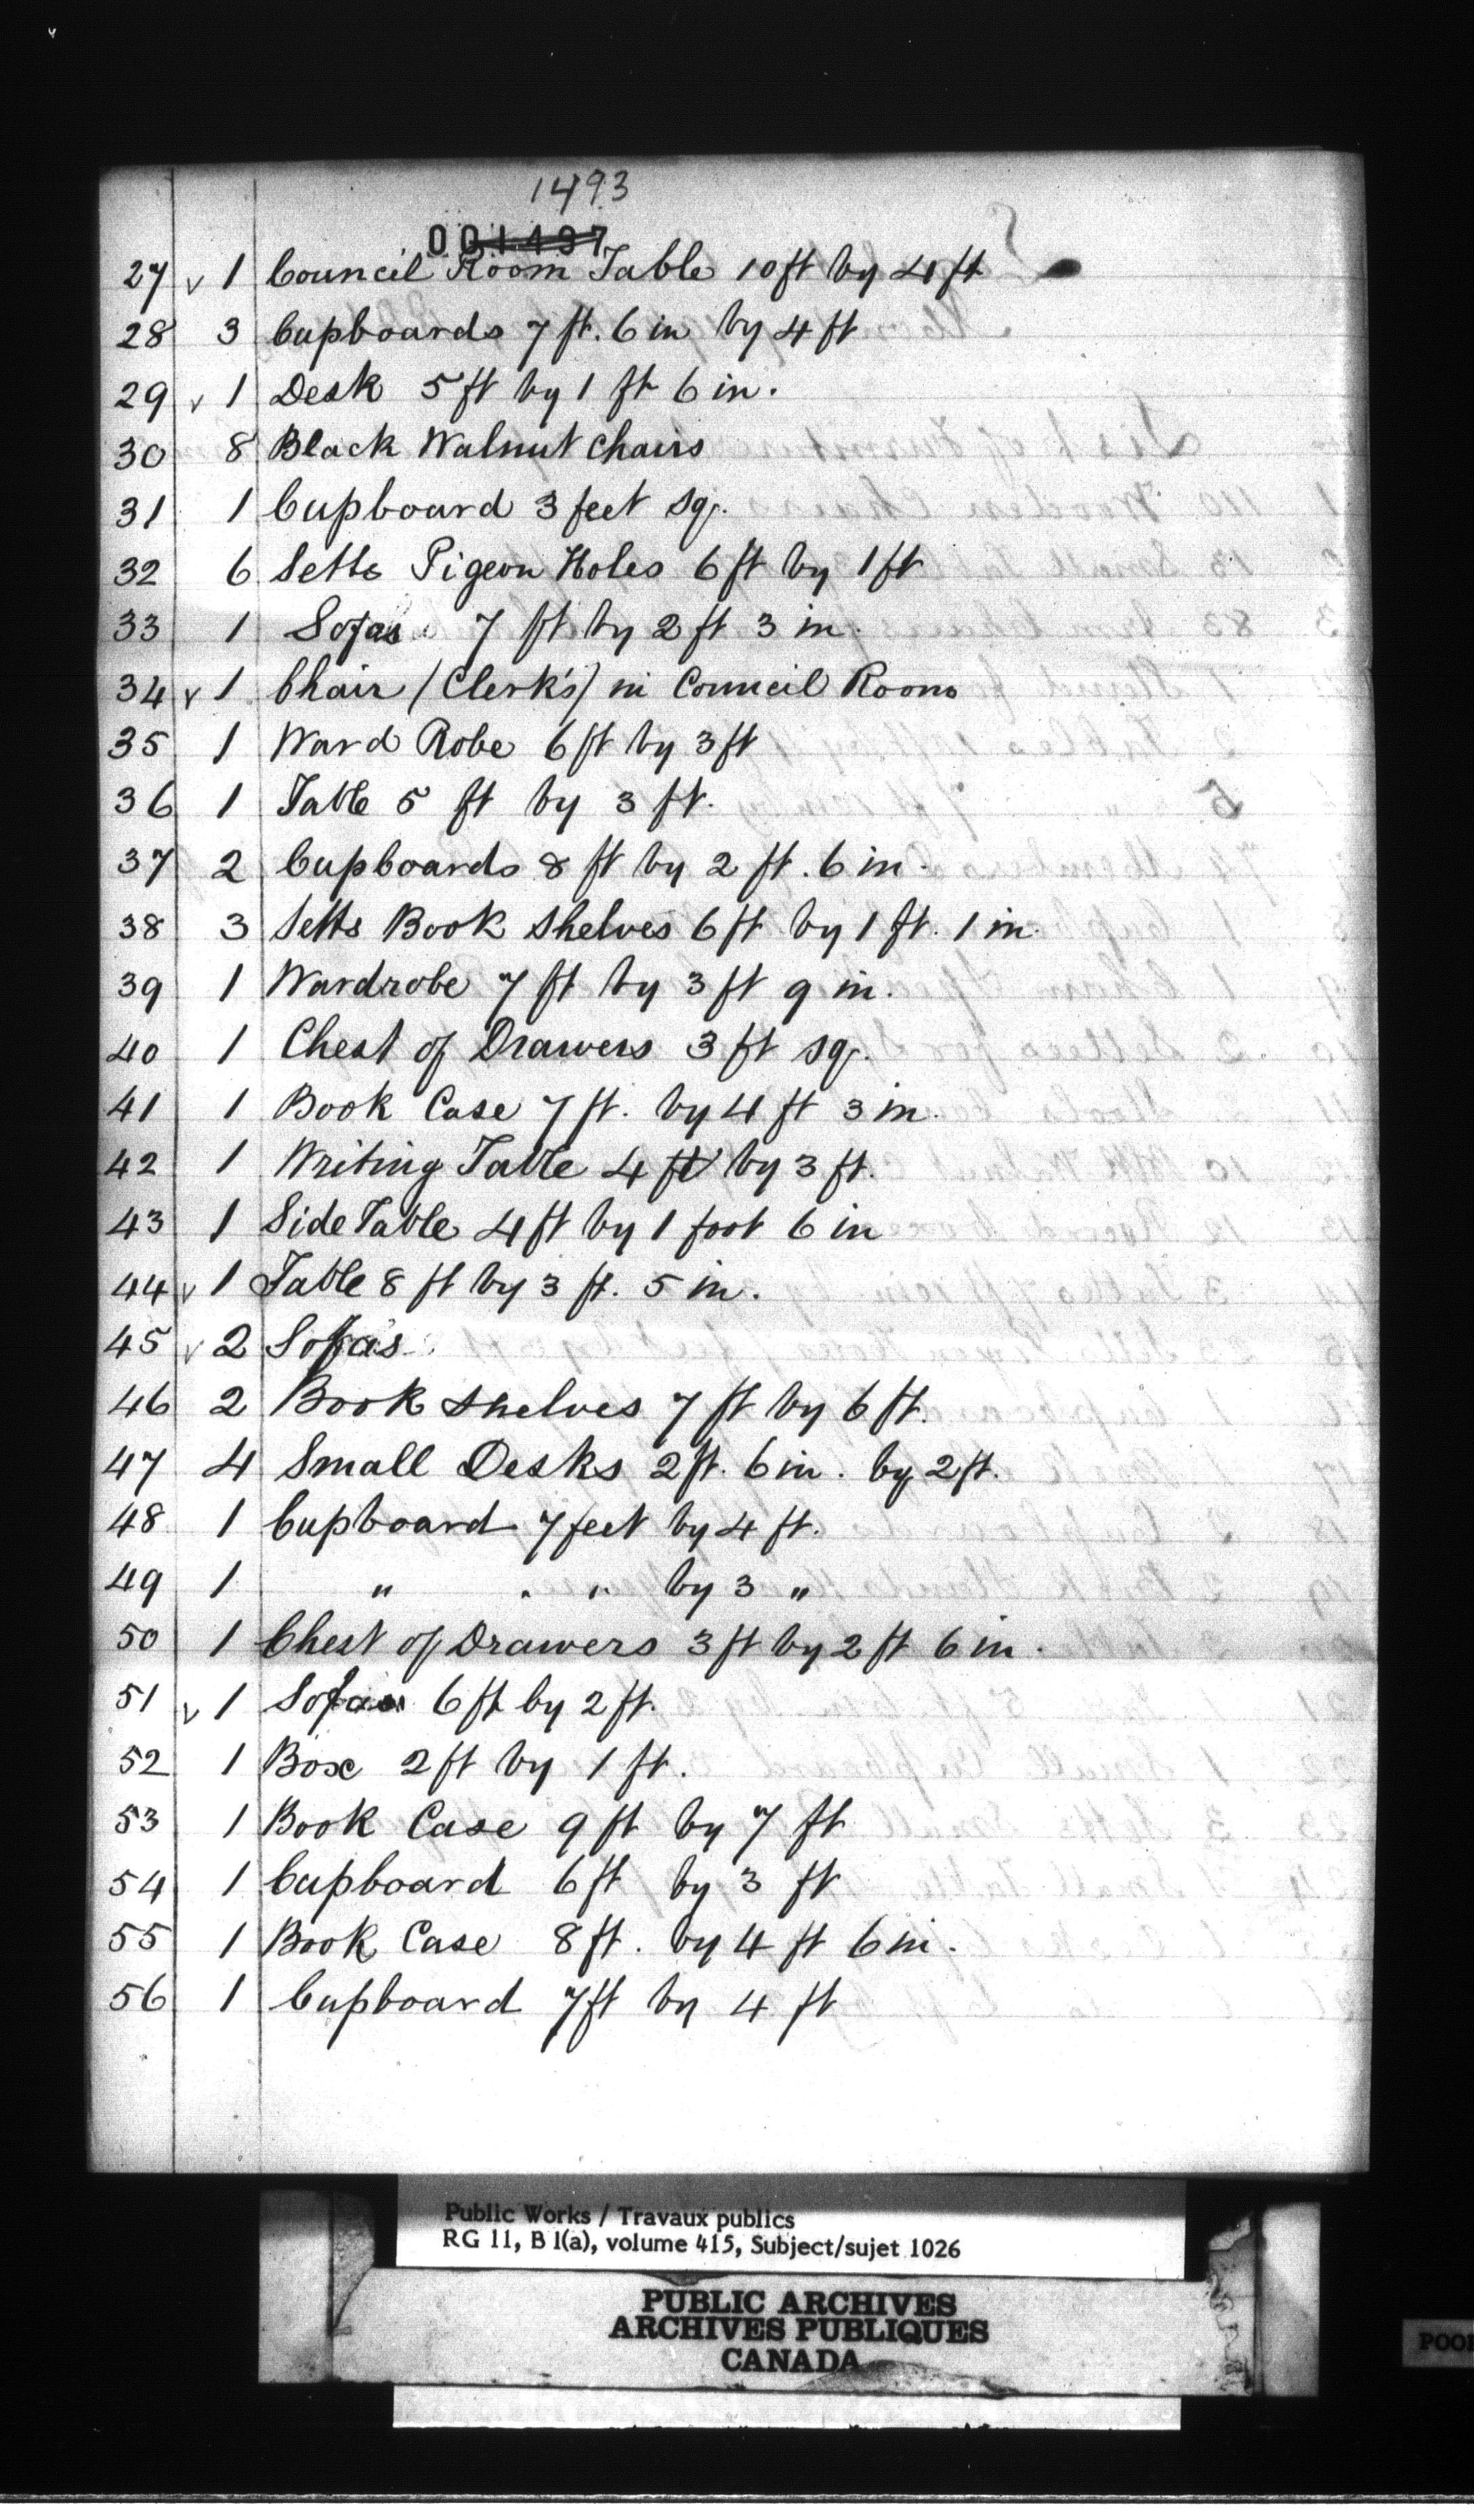 1493
001497
27 v 1 Council Room Table 10 ft by 4 ft
28 3 Cupboards 7 ft. 6 in by 4 ft
29 v 1 Desk 5 ft by 1 ft 6 in.
30 8 Black Walnut Chairs
31 1 Cupboard 3 feet sq.
32 6 Setts Pigeon Holes 6 ft by 1 ft
33 1 Sofa 7 ft by 2 ft 3 in.
34 v 1 Chair (Clerk's) in Council Room
35 1 Ward Robe 6 ft by 3 ft
36 1 Table 5 ft by 3 ft.
37 2 Cupboards 8 ft by 2 ft. 6 in.
38 3 Setts Book Shelves 6 ft by 1 ft. 1 in.
39 1 Wardrobe 7 ft by 3 ft 9 in.
40 1 Chest of Drawers 3 ft sq.
41 1 Book Case 7 ft. by 4 ft 3 in.
42 1 Writing Table 4 ft by 3 ft.
43 1 Side Table 4 ft by 1 foot 6 in
44 v 1 Table 8 ft by 3 ft. 5 in.
45 v 2 Sofas
46 2 Book Shelves 7 ft by 6 ft.
47 4 Small Desks 2 ft. 6 in. by 2 ft.
48 1 Cupboard 7 feet by 4 ft.
49 1 " " " by 3 "
50 1 Chest of Drawers 3 ft by 2 ft 6 in.
51 v 1 Sofa 6 ft by 2 ft.
52 1 Box 2 ft by 1 ft.
53 1 Book Case 9 ft by 7 ft
54 1 Cupboard 6 ft by 3 ft
55 1 Book Case 8 ft. by 4 ft 6 in.
56 1 Cupboard 7 ft by 4 ft
Public Works / Travaux publics
RG 11, B 1(a), volume 415, Subject/sujet 1026
PUBLIC ARCHIVES
ARCHIVES PUBLIQUES
CANADA